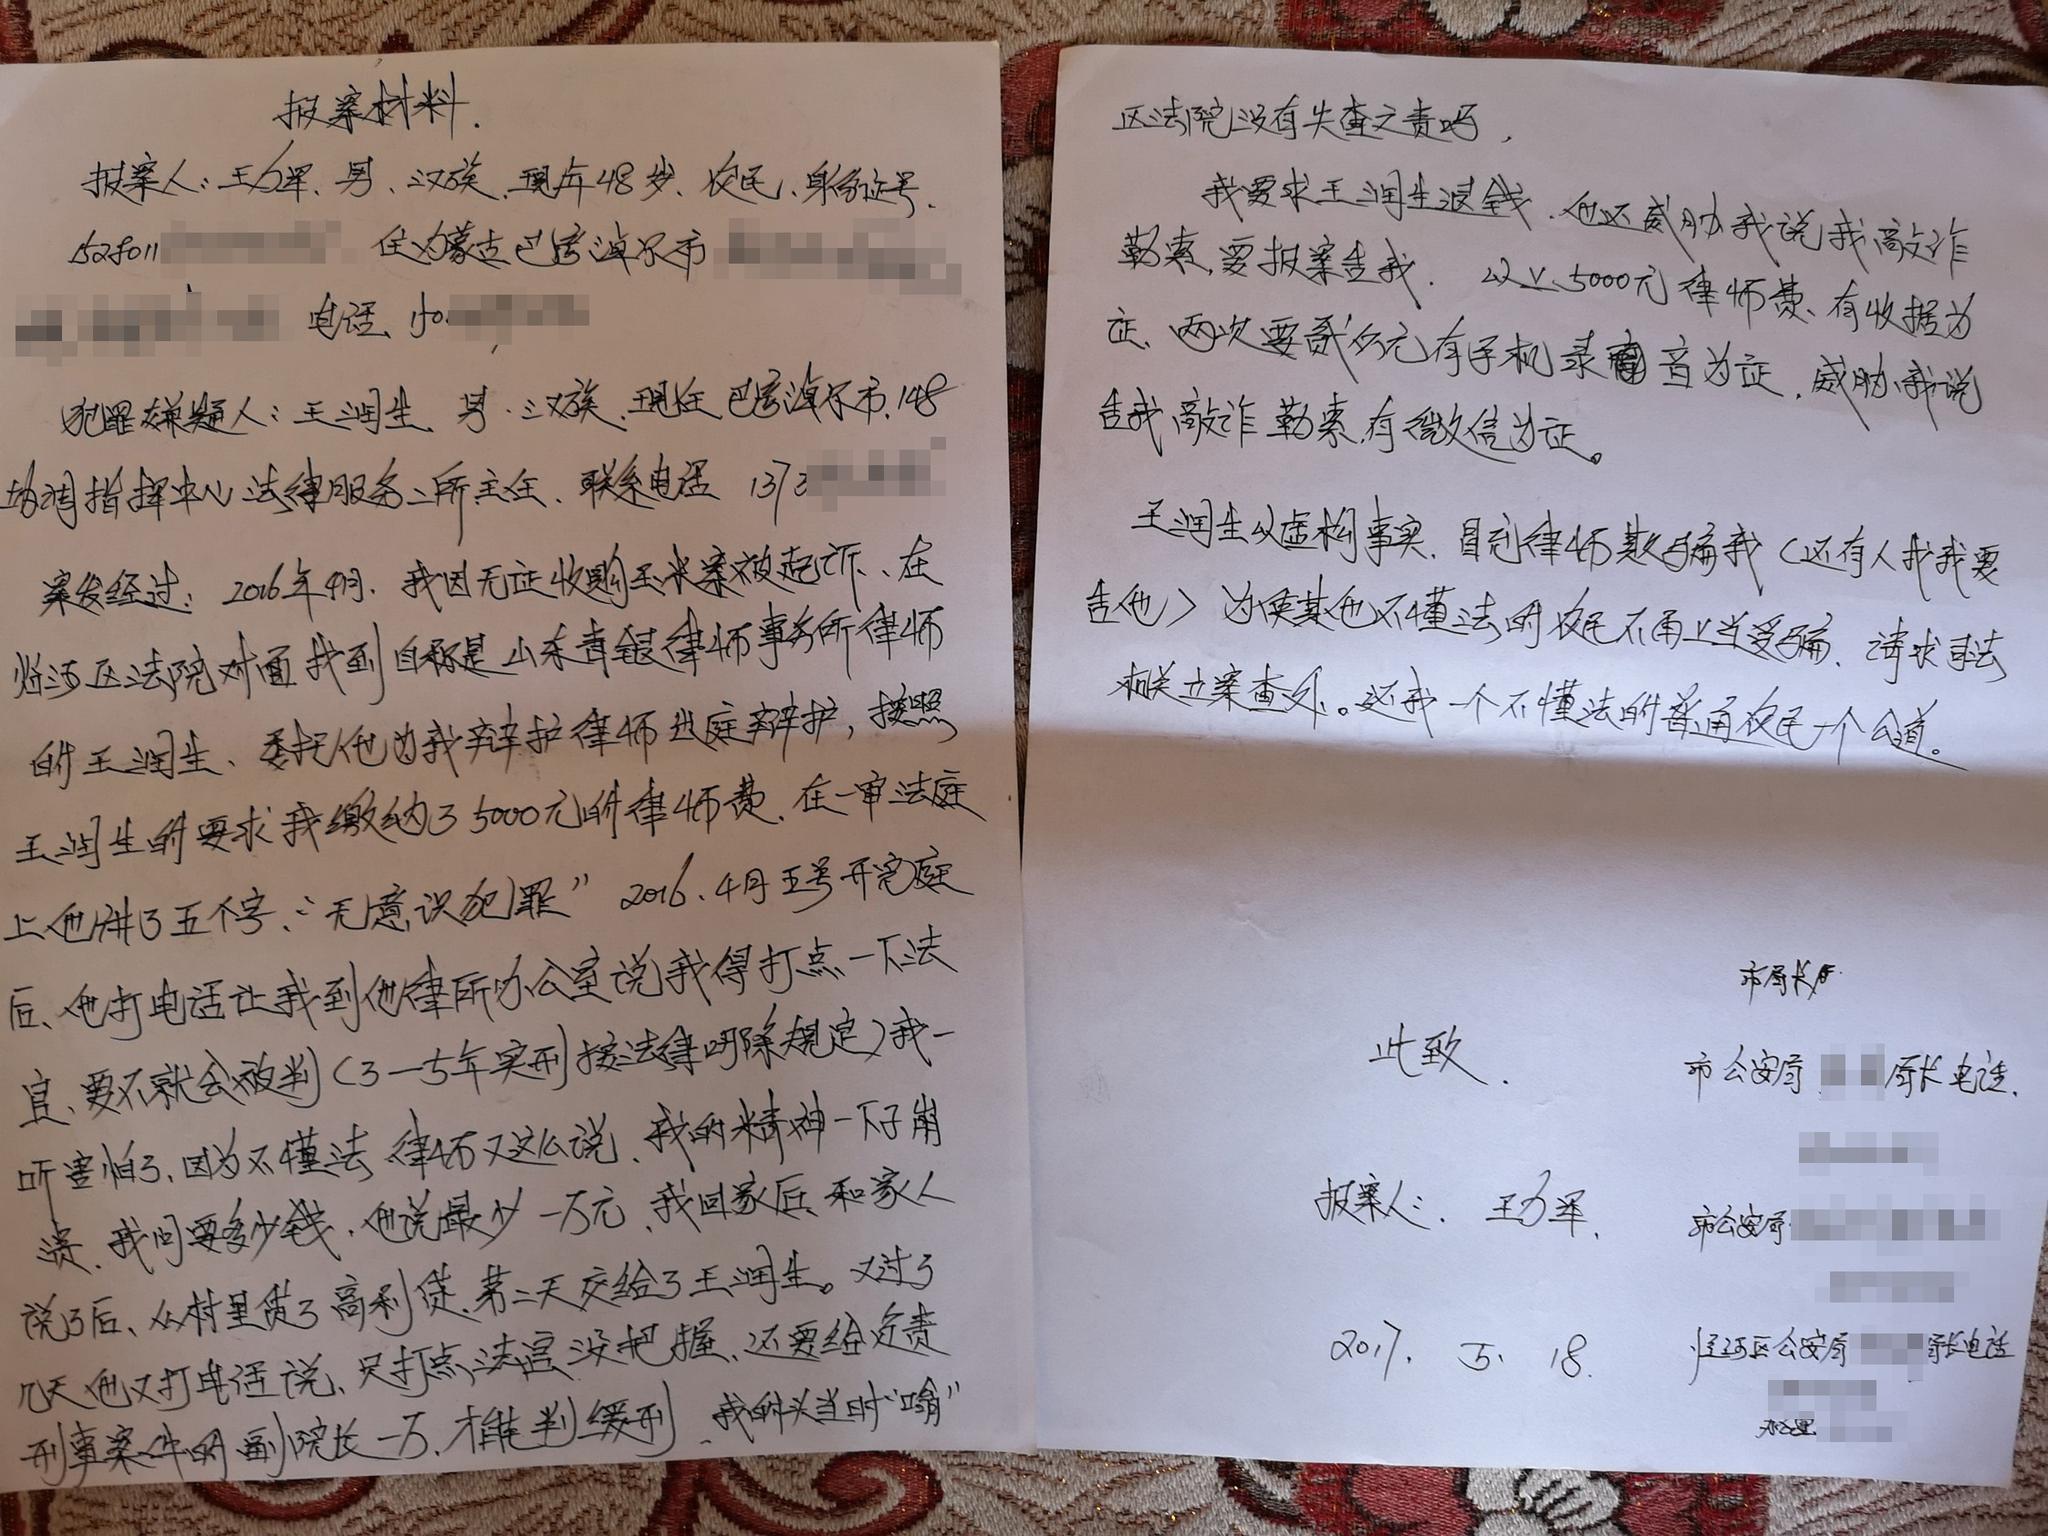 报案材料.
报案人:王力军、男、汉族、现年48岁、农民、身份证号.
152801 住内蒙古巴彦淖尔市
电话、150
犯罪嫌疑人:王润生、男、汉族、现任巴彦淖尔市.148
协调指挥中心法律服务二所主任、联系电话 1373
案发经过: 2016年4月.我因无证收购玉米案被起诉、在
临河区法院对面找到自称是山东青银律师事务所律师
的王润生、委托他为我辩护律师出庭辩护,按照
王润生的要求我缴纳了5000元的律师费.在一审法庭
上他讲了五个字、“无意识犯罪” 2016.4月五号开完庭
后、他打电话让我到他律所办公室说我得打点一下法
官、要不就会被判(3-5年实刑按法律 规定)我一
听害怕了、因为不懂法.律师又这么说、我的精神一下子崩
溃.我问要多少钱.他说最少一万元、我回家后和家人
说了后、从村里贷了高利贷.第二天交给了王润生。又过了
几天他又打电话说、只打点法官没把握、还要给负责
刑事案件的副院长一万.才能判缓刑.我的头当时“嗡”
区法院没有失查之责吗,
我要求王润生退钱.他还威胁我说我敲诈
勒索,要报案告我. 以上.5000元律师费、有收据为
证、两次要贰万元有手机录音为证.威胁我说
告我敲诈勒索,有微信为证。
王润生以虚构事实.冒充律师欺骗我(还有人找我要
告他)为使其他不懂法的农民不再上当受骗.请求司法
机关立案查处。还我一个不懂法的普通农民一个公道。
市局长
此致.
市公安局 局长电话.
报案人:王力军.
市公安局
2017. 5. 18.
临河区公安局 局长电话
办公室